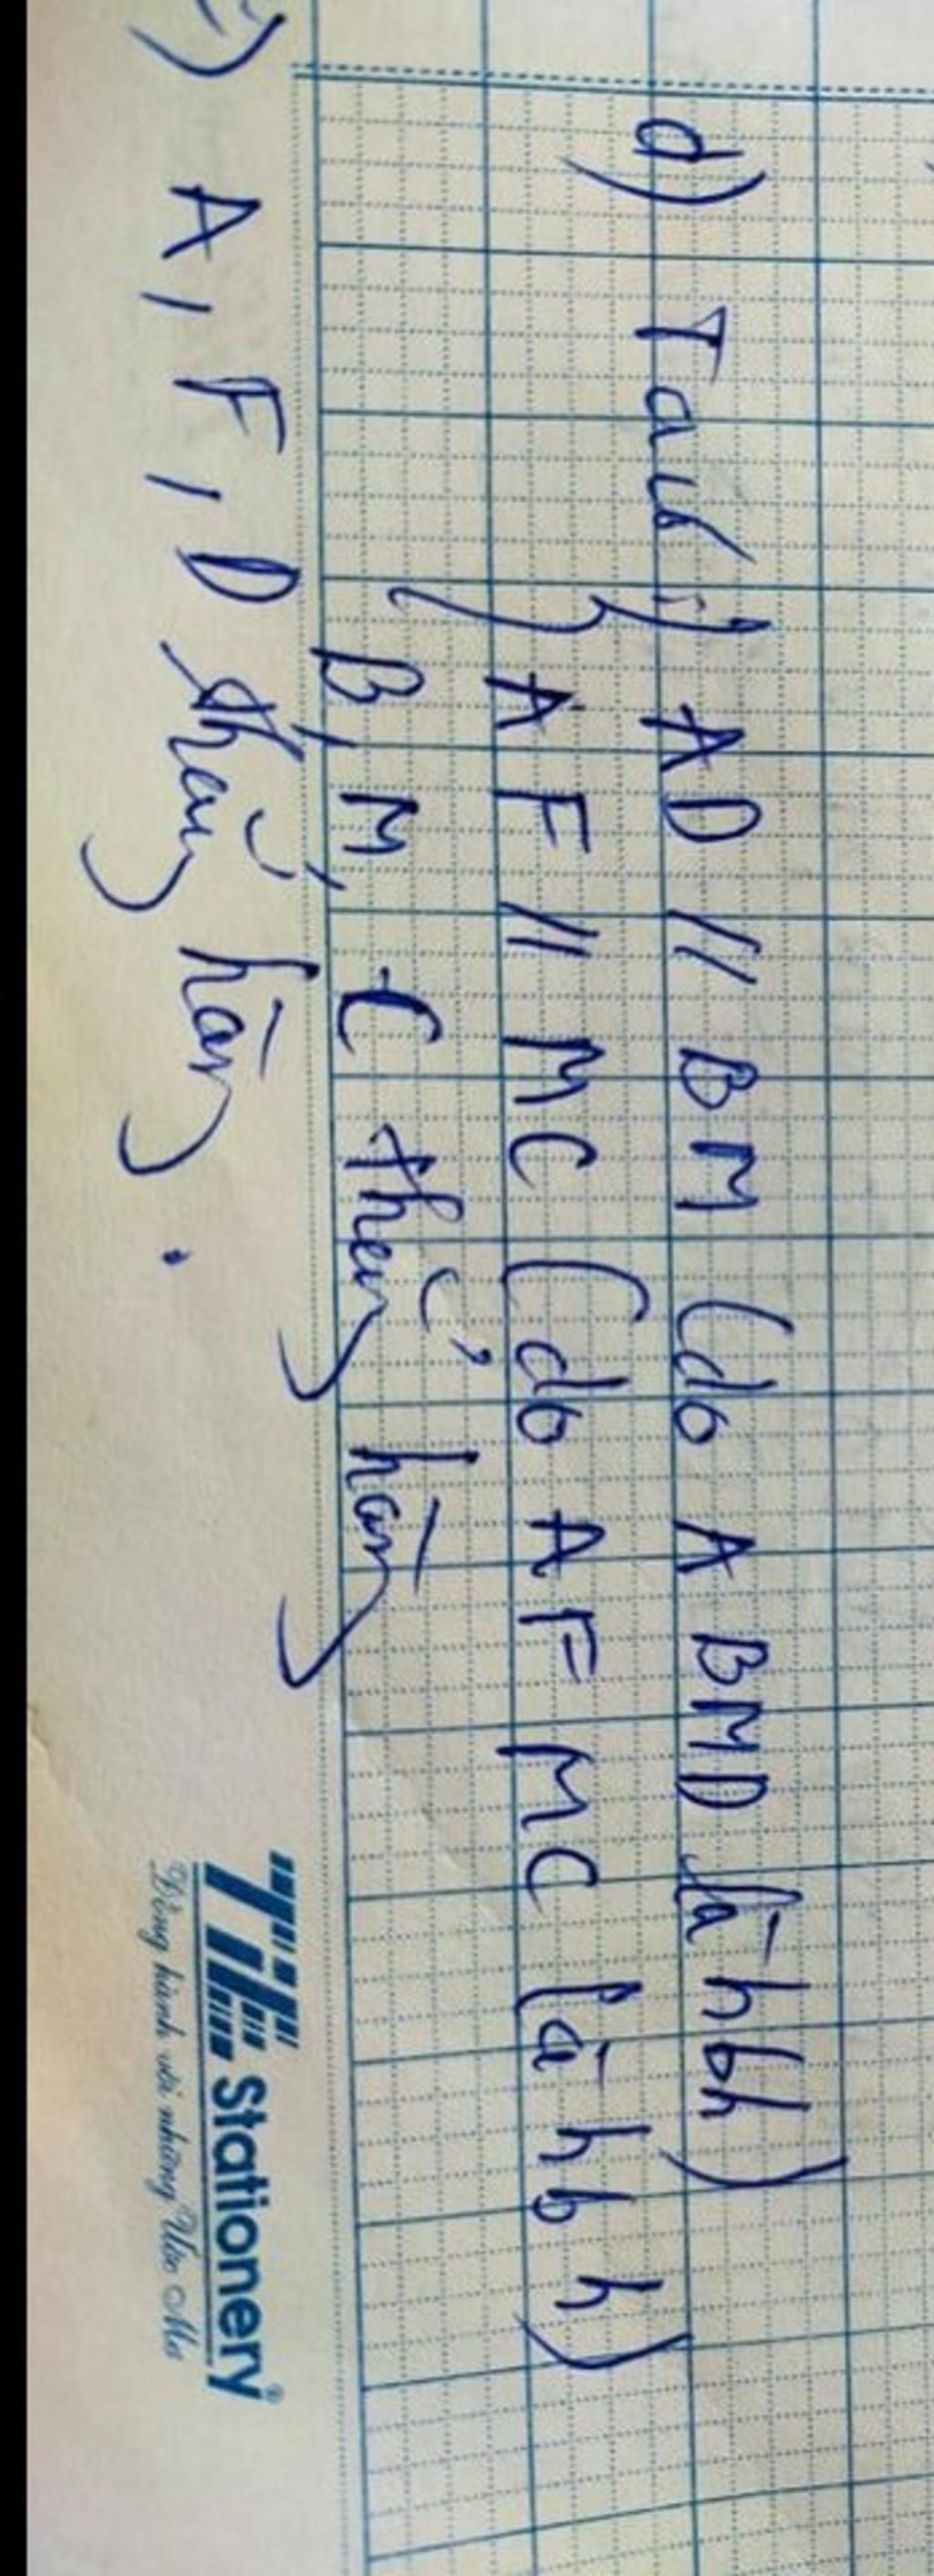 d) Ta có AD // BM (do ABMD là hbh)
AF // MC (do AFMC là hbh)
B, M, C thẳng hàng
=) A, F, D thẳng hàng.
TIẾN Stationery®
Đồng hành với những Ước Mơ